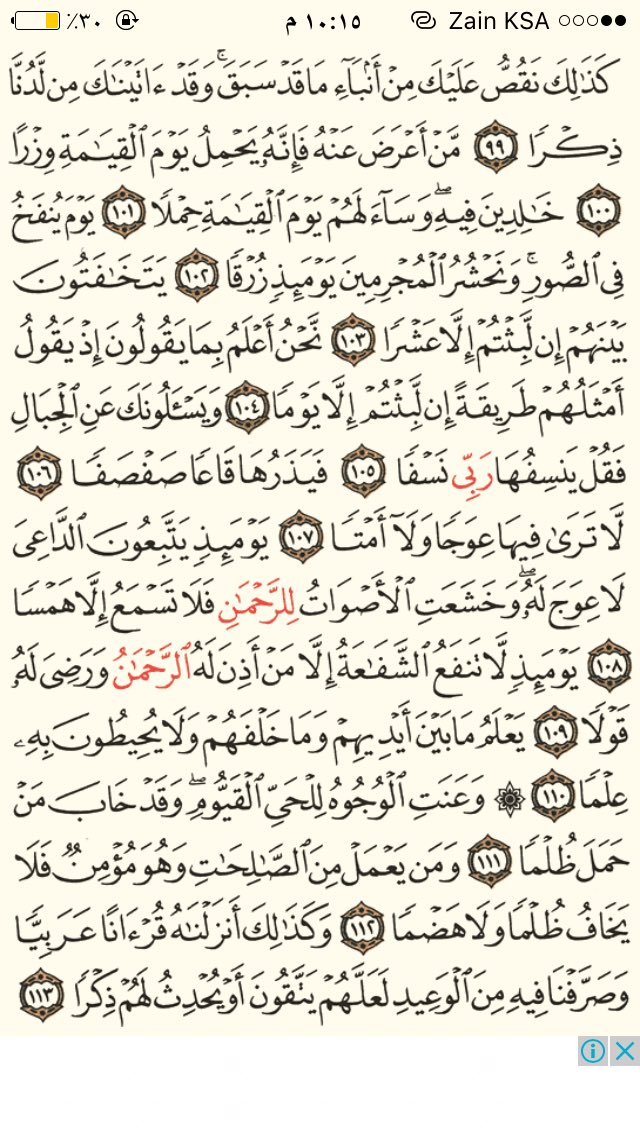 ٪٣٠ ١٠:١٥ م Zain KSA
كَذَٰلِكَ نَقُصُّ عَلَيْكَ مِنْ أَنۢبَآءِ مَا قَدْ سَبَقَ ۚ وَقَدْ ءَاتَيْنَـٰكَ مِن لَّدُنَّا
ذِكْرًا ٩٩ مَّنْ أَعْرَضَ عَنْهُ فَإِنَّهُۥ يَحْمِلُ يَوْمَ ٱلْقِيَـٰمَةِ وِزْرًا
١٠٠ خَـٰلِدِينَ فِيهِ ۖ وَسَآءَ لَهُمْ يَوْمَ ٱلْقِيَـٰمَةِ حِمْلًا ١٠١ يَوْمَ يُنفَخُ
فِى ٱلصُّورِ ۚ وَنَحْشُرُ ٱلْمُجْرِمِينَ يَوْمَئِذٍ زُرْقًا ١٠٢ يَتَخَـٰفَتُونَ
بَيْنَهُمْ إِن لَّبِثْتُمْ إِلَّا عَشْرًا ١٠٣ نَّحْنُ أَعْلَمُ بِمَا يَقُولُونَ إِذْ يَقُولُ
أَمْثَلُهُمْ طَرِيقَةً إِن لَّبِثْتُمْ إِلَّا يَوْمًا ١٠٤ وَيَسْـَٔلُونَكَ عَنِ ٱلْجِبَالِ
فَقُلْ يَنسِفُهَا رَبِّى نَسْفًا ١٠٥ فَيَذَرُهَا قَاعًا صَفْصَفًا ١٠٦
لَّا تَرَىٰ فِيهَا عِوَجًا وَلَآ أَمْتًا ١٠٧ يَوْمَئِذٍ يَتَّبِعُونَ ٱلدَّاعِىَ
لَا عِوَجَ لَهُۥ ۖ وَخَشَعَتِ ٱلْأَصْوَاتُ لِلرَّحْمَـٰنِ فَلَا تَسْمَعُ إِلَّا هَمْسًا
١٠٨ يَوْمَئِذٍ لَّا تَنفَعُ ٱلشَّفَـٰعَةُ إِلَّا مَنْ أَذِنَ لَهُ ٱلرَّحْمَـٰنُ وَرَضِىَ لَهُۥ
قَوْلًا ١٠٩ يَعْلَمُ مَا بَيْنَ أَيْدِيهِمْ وَمَا خَلْفَهُمْ وَلَا يُحِيطُونَ بِهِۦ
عِلْمًا ١١٠ ۞ وَعَنَتِ ٱلْوُجُوهُ لِلْحَىِّ ٱلْقَيُّومِ ۖ وَقَدْ خَابَ مَنْ
حَمَلَ ظُلْمًا ١١١ وَمَن يَعْمَلْ مِنَ ٱلصَّـٰلِحَـٰتِ وَهُوَ مُؤْمِنٌ فَلَا
يَخَافُ ظُلْمًا وَلَا هَضْمًا ١١٢ وَكَذَٰلِكَ أَنزَلْنَـٰهُ قُرْءَانًا عَرَبِيًّا
وَصَرَّفْنَا فِيهِ مِنَ ٱلْوَعِيدِ لَعَلَّهُمْ يَتَّقُونَ أَوْ يُحْدِثُ لَهُمْ ذِكْرًا ١١٣